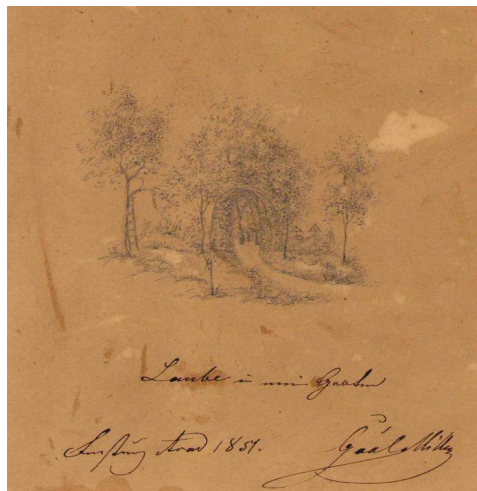 Laube in mein Garten
Festung Arad 1851. Gaál Miklós